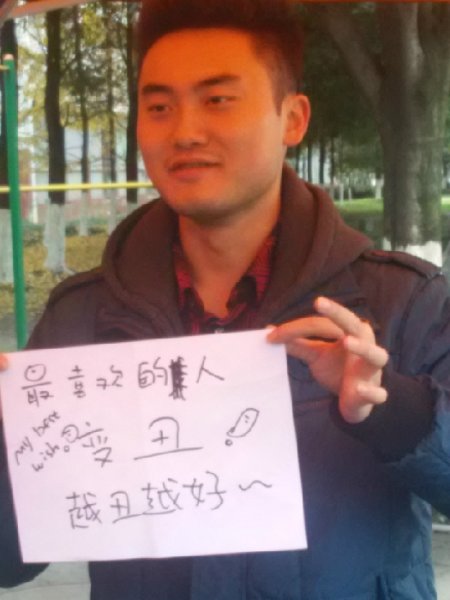 最喜欢的人
my best
wish:
变丑!
越丑越好~